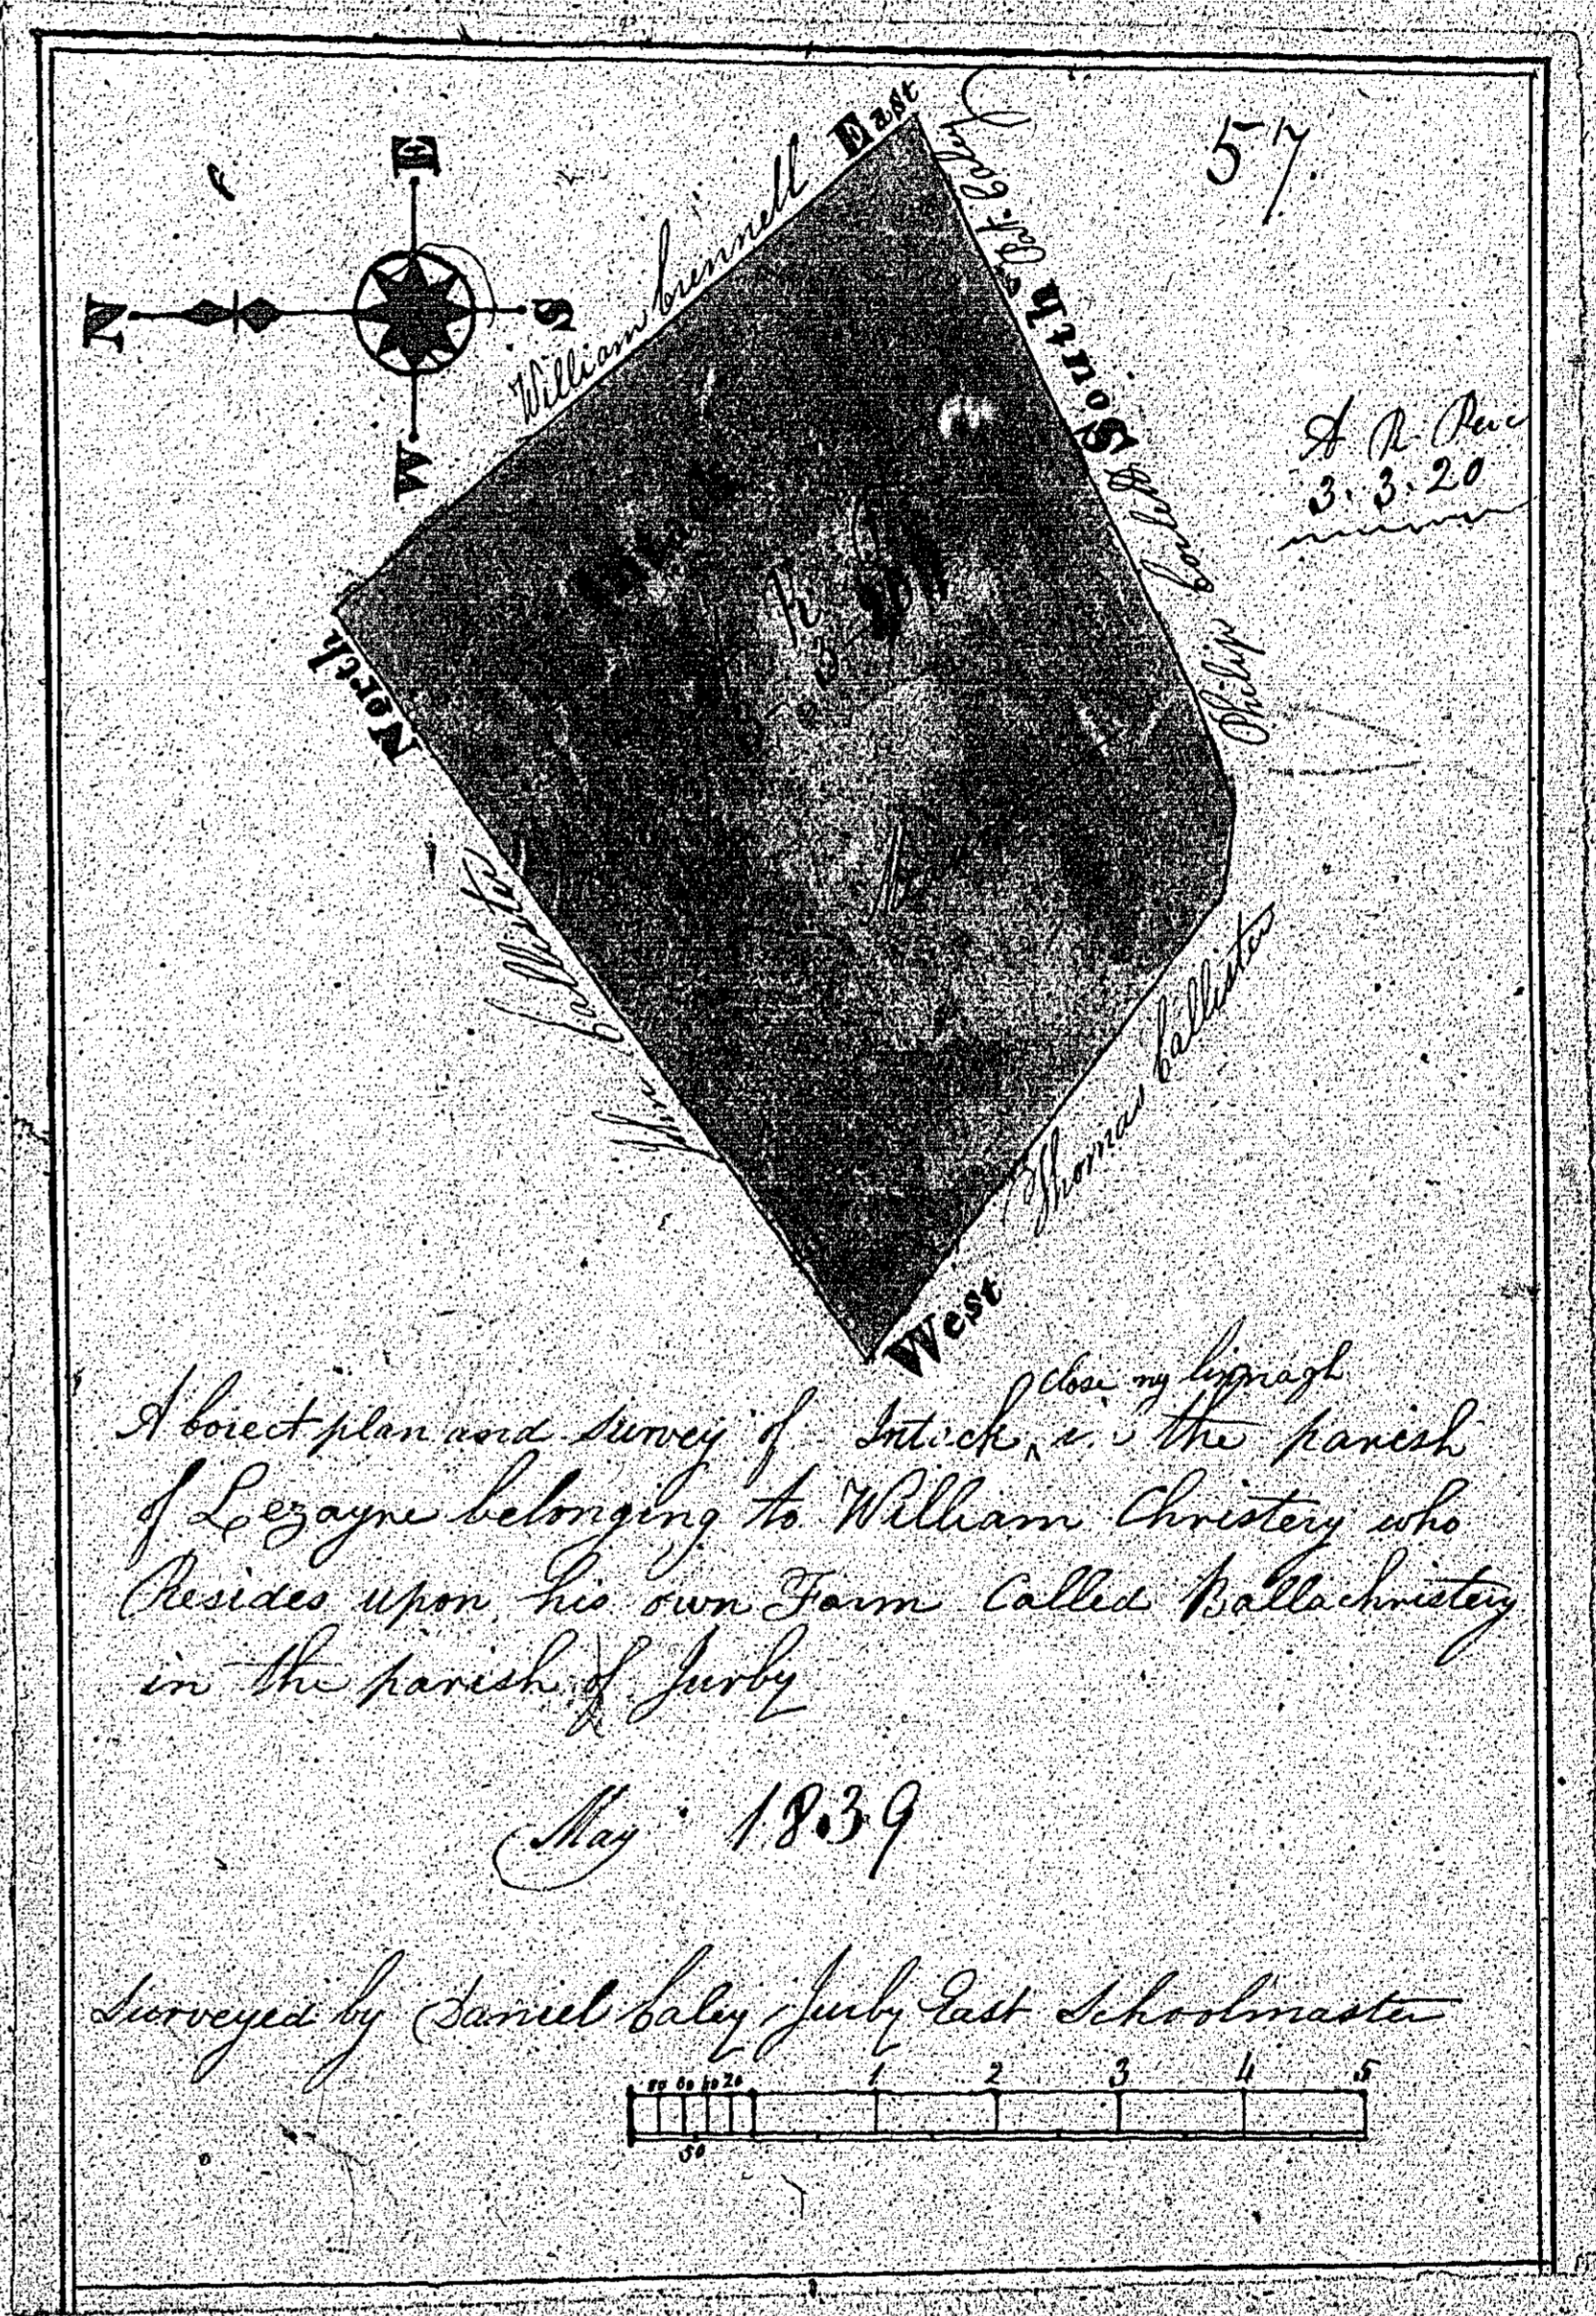 57
E
N
S
W
East
William Crennell
Pat. Caley
South
Philip Corlett
A R Per
3. 3. 20
North
Intack
John Callister
Thomas Callister
West
close ny
A Corect plan and Survey of Intack in the parish
of Lezayre belonging to William Christery who
Resides upon his own Farm Called Ballachristery
in the parish of Jurby
May 1839
Surveyed by Daniel Caley Jurby East Schoolmaster
80 60 40 20 1 2 3 4 5
50